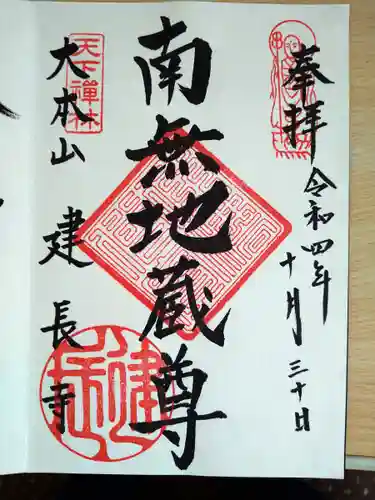 奉拝
令和四年
十月三十日
南無地蔵尊
天下禅林
大本山
建長寺